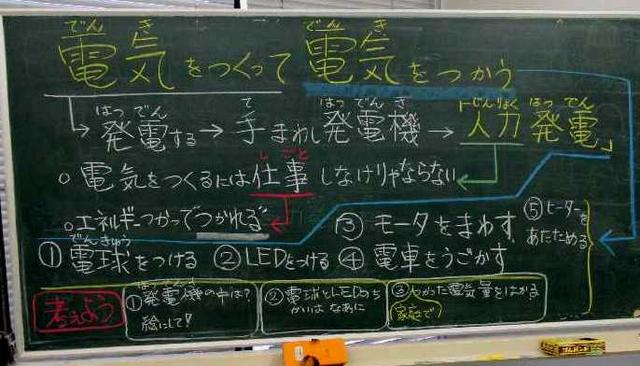 でん き でん き
電気をつくって 電気をつかう
はつ でん て はつ でん き 「じんりょく はつ でん
→発電する→手まわし発電機→人力発電」
し ごと
○電気をつくるには仕事しなけりゃならない
○エネルギーつかって"つかれる"
③モータをまわす
⑤ヒーターをあたためる
でんきゅう
①電球をつける ②LEDをつける ④電車をうごかす
考えよう
はつでんき
①発電機の中は?
絵にして!
②電球とLEDのちがいは なあに
③つかった電気量をはかる
(家庭で)
ゴムバンド